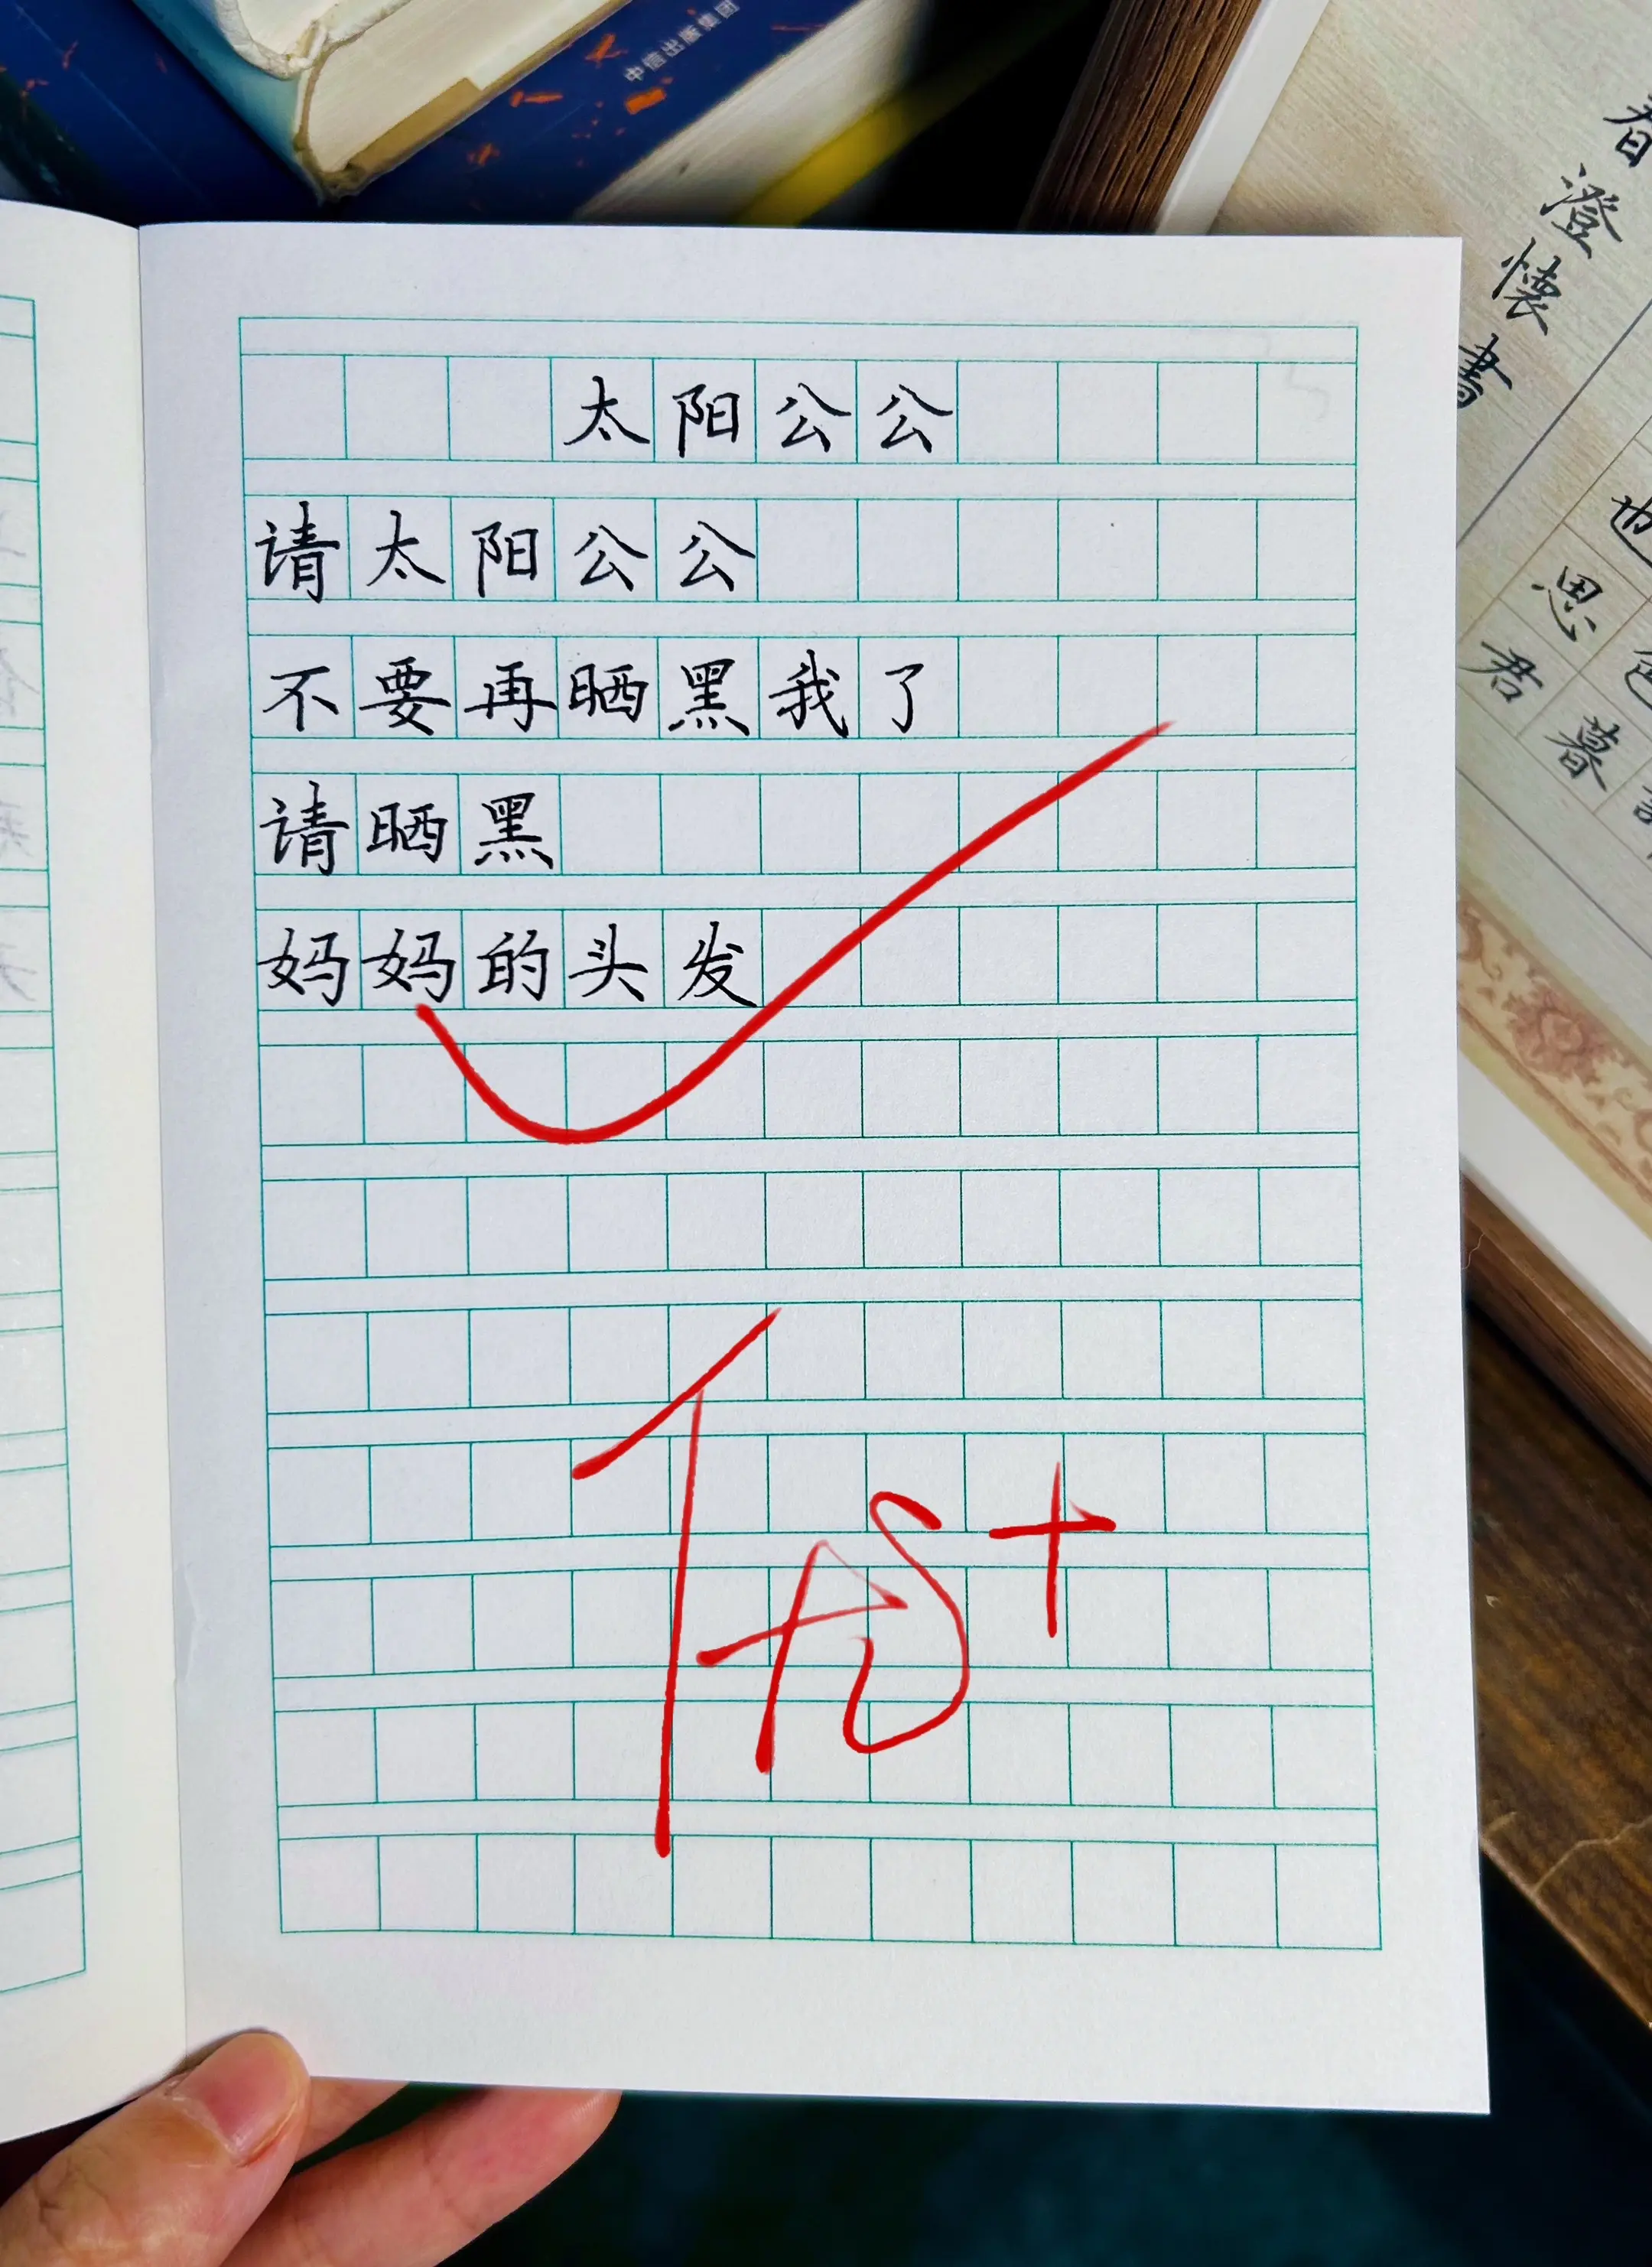 中信出版集团
太阳公公
请太阳公公
不要再晒黑我了
请晒黑
妈妈的头发
优+
春
澄懷書
也
思君
暮